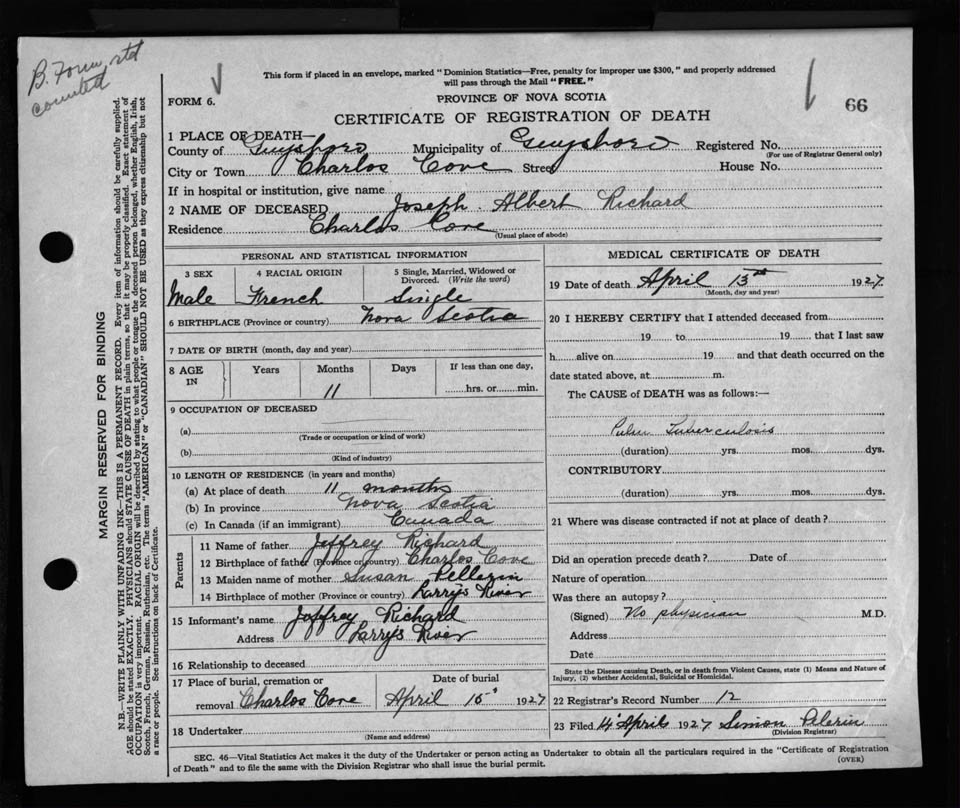 B. Form, std
counted
This form if placed in an envelope, marked "Dominion Statistics—Free, penalty for improper use $300," and properly addressed
will pass through the Mail "FREE."
FORM 6.
PROVINCE OF NOVA SCOTIA
66
CERTIFICATE OF REGISTRATION OF DEATH
1 PLACE OF DEATH—
County of Guysboro Municipality of Guysboro Registered No.
(For use of Registrar General only)
City or Town Charlos Cove Street House No.
If in hospital or institution, give name
2 NAME OF DECEASED Joseph Albert Richard
Residence Charlos Cove
(Usual place of abode)
PERSONAL AND STATISTICAL INFORMATION
3 SEX 4 RACIAL ORIGIN 5 Single, Married, Widowed or
Divorced. (Write the word)
Male French Single
6 BIRTHPLACE (Province or country) Nova Scotia
7 DATE OF BIRTH (month, day and year)
8 AGE IN Years Months Days If less than one day,
11 hrs. or min.
9 OCCUPATION OF DECEASED
(a)
(Trade or occupation or kind of work)
(b)
(Kind of industry)
10 LENGTH OF RESIDENCE (in years and months)
(a) At place of death 11 months
(b) In province Nova Scotia
(c) In Canada (if an immigrant) Canada
Parents
11 Name of father Jeffrey Richard
12 Birthplace of father (Province or country) Charlos Cove
13 Maiden name of mother Susan Pellerin
14 Birthplace of mother (Province or country) Larrys River
15 Informant's name Jeffrey Richard
Address Larrys River
16 Relationship to deceased
17 Place of burial, cremation or Date of burial
removal Charlos Cove April 15 1927
18 Undertaker
(Name and address)
MEDICAL CERTIFICATE OF DEATH
19 Date of death April 13th 1927.
(Month, day and year)
20 I HEREBY CERTIFY that I attended deceased from
19 to 19 that I last saw
h alive on 19 and that death occurred on the
date stated above, at m.
The CAUSE of DEATH was as follows:—
Pulm Tuberculosis
(duration) yrs. mos. dys.
CONTRIBUTORY
(duration) yrs. mos. dys.
21 Where was disease contracted if not at place of death?
Did an operation precede death? Date of
Nature of operation
Was there an autopsy?
(Signed) No physician M.D.
Address
Date
State the Disease causing Death, or in death from Violent Causes, state (1) Means and Nature of
Injury, (2) whether Accidental, Suicidal or Homicidal.
22 Registrar's Record Number 12
23 Filed 4 April 1927 Simon Pelerin
(Division Registrar)
SEC. 46—Vital Statistics Act makes it the duty of the Undertaker or person acting as Undertaker to obtain all the particulars required in the "Certificate of Registration
of Death" and to file the same with the Division Registrar who shall issue the burial permit.
(OVER)
MARGIN RESERVED FOR BINDING
N.B.—WRITE PLAINLY WITH UNFADING INK—THIS IS A PERMANENT RECORD. Every item of information should be carefully supplied.
AGE should be stated EXACTLY. PHYSICIANS should STATE CAUSE OF DEATH in plain terms, so that it may be properly classified. Exact statement of
OCCUPATION is very important. RACIAL ORIGIN will be described by stating to what people or tongue the deceased person belonged, whether English, Irish,
Scotch, French, German, Russian, Ruthenian, etc. The terms "AMERICAN" or "CANADIAN" SHOULD NOT BE USED as they express citizenship but not
a race or people. See instructions on back of Certificate.